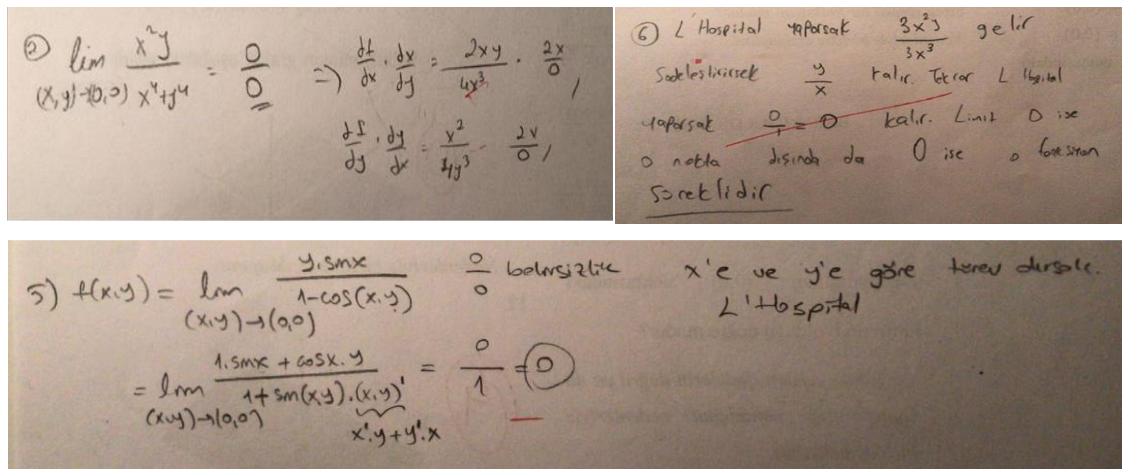 2) lim (x,y)→(0,0) x²y / x⁴+y⁴ = 0/0 ⇒) df/dx · dx/dy = 2xy/4x³ · 2x/0,
df/dy · dy/dx = x²/4y³ · 2x/0,
6) L'Hospital yaparsak 3x²y/3x³ gelir
Sadeleştirirsek y/x kalır. Tekrar L Hospital
yaparsak 0/1 = 0 kalır. Limit 0 ise
0 nokta dışında da 0 ise o fonksiyon
süreklidir
5) f(x,y) = lim (x,y)→(0,0) y.sinx / 1-cos(x,y) 0/0 belirsizlik x'e ve y'e göre türev alırsak.
L'Hospital
= lim (x,y)→(0,0) 1.sinx + cosx.y / 1+sin(x,y).(x,y)' = 0/1 = 0
x'.y+y'.x